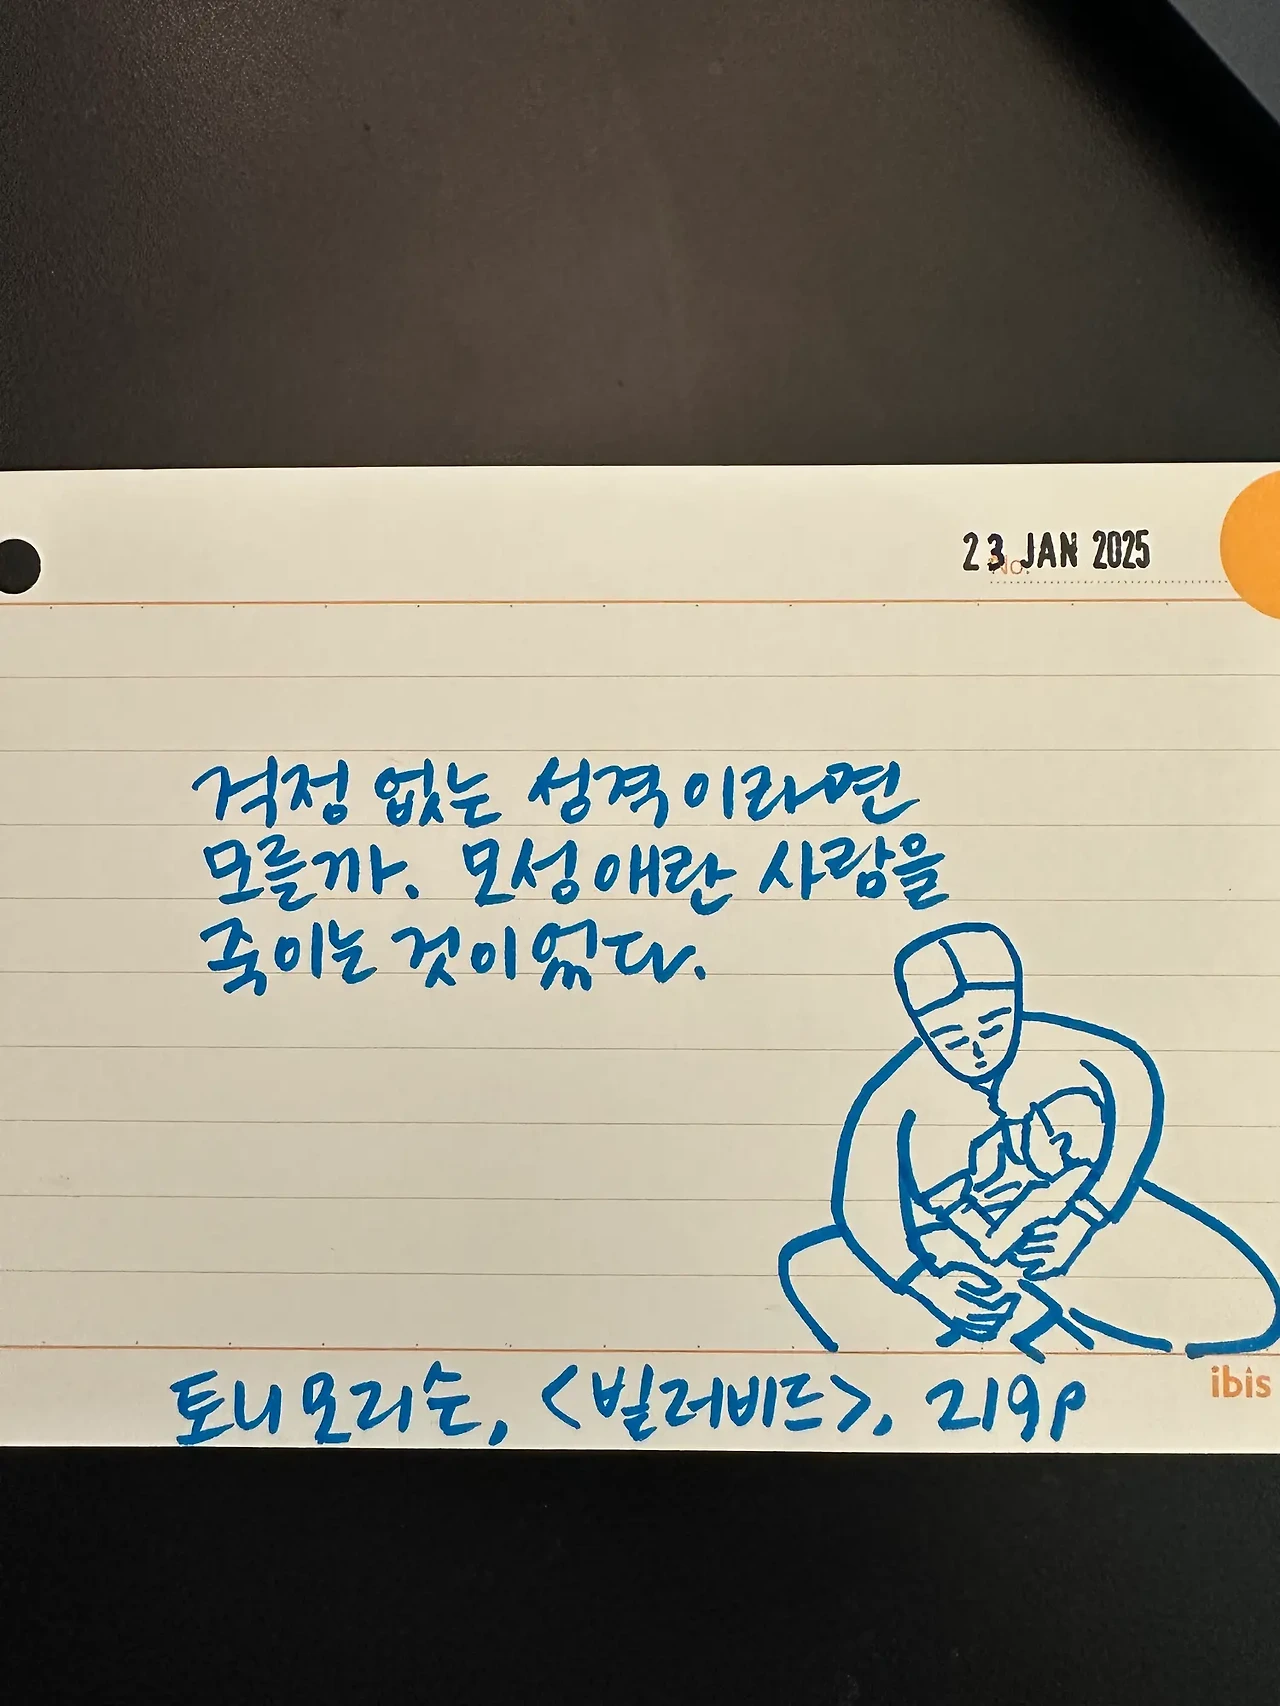 23 JAN 2025
No.
걱정 없는 성격이라면
모를까. 모성애란 사람을
죽이는 것이었다.
ibis
토니 모리슨, <빌러비드>, 219p